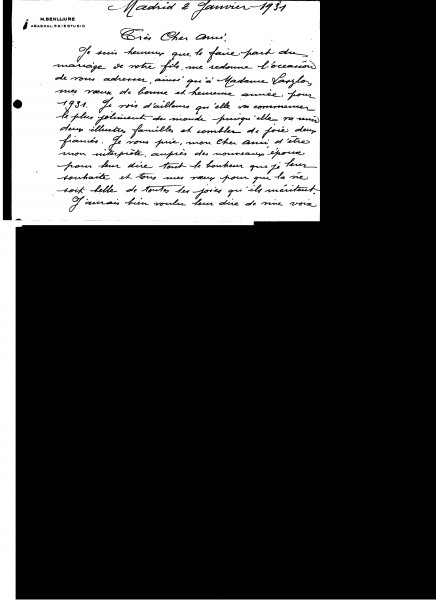 Madrid 2 Janvier 1931
M. BENLLIURE
ABASCAL, 53 - ESTUDIO
Très Cher Ami:
Je suis heureux que le faire part du
mariage de votre fils, me redonne l'occasion
de vous adresser, ainsi qu'à Madame Laszlo,
mes vœux de bonne et heureuse année pour
1931. Je vois d'ailleurs qu'elle va commencer
le plus joliment du monde puisqu'elle va unir
deux illustres familles et combler de joie deux
fiancés. Je vous prie, mon Cher Ami, d'être
mon interprète, auprès des nouveaux époux
pour leur dire tout le bonheur que je leur
souhaite et tous mes vœux pour que la vie
soit belle de toutes les joies qu'ils méritent.
J'aurais bien voulu leur dire de vive voix